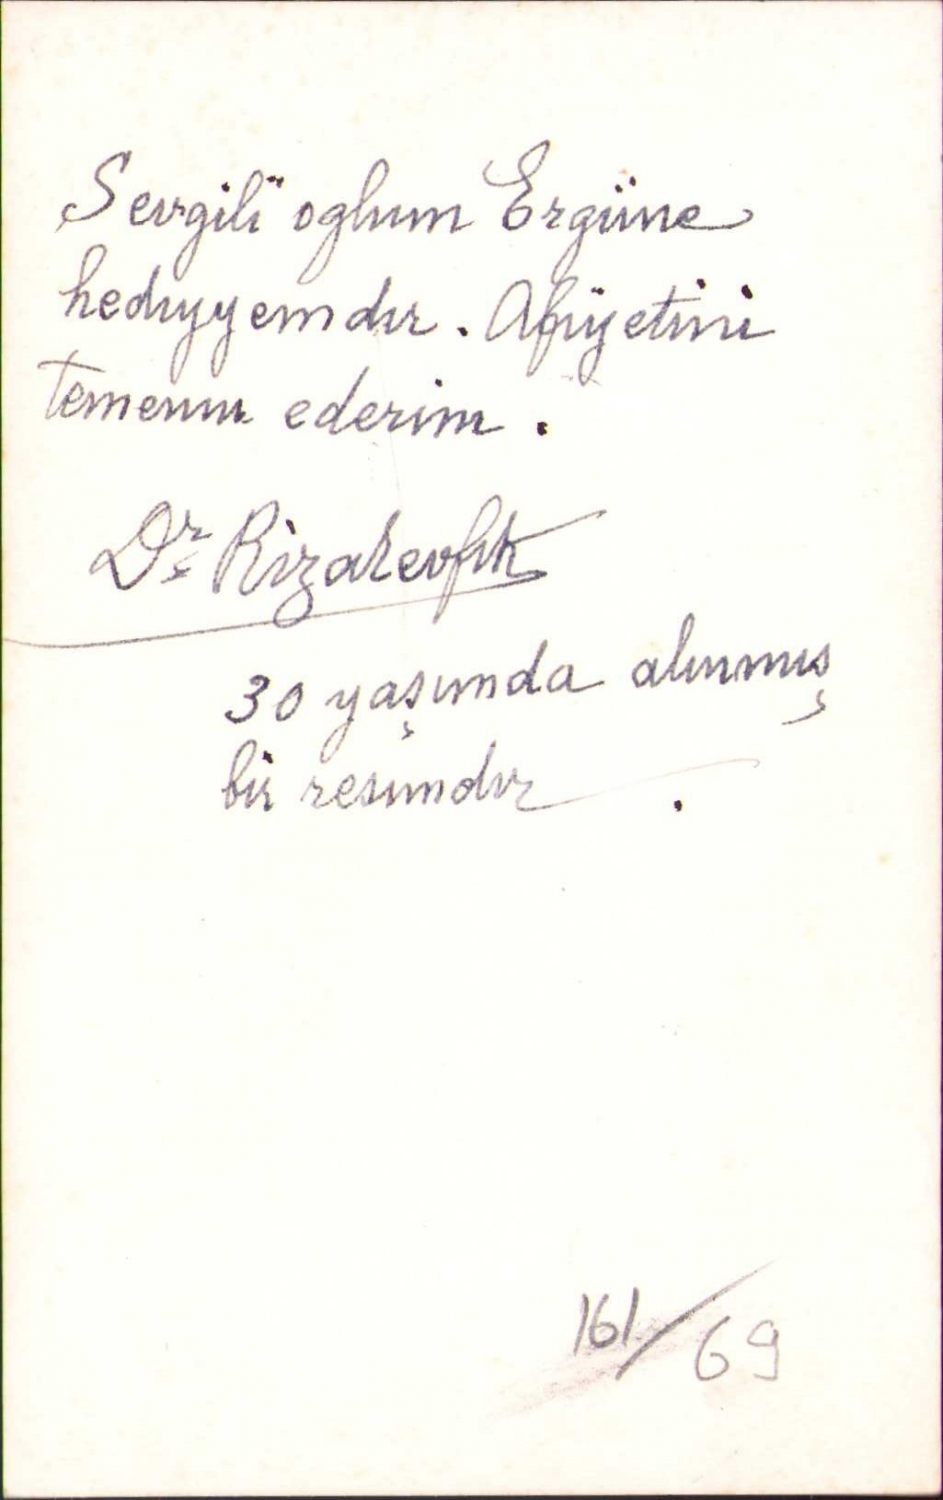 Sevgili oglum Ergüne
hediyyemdir. Afiyetini
temenni ederim.
Dr Rıza Tevfik
30 yaşımda alınmış
bir resimdir.
161/69